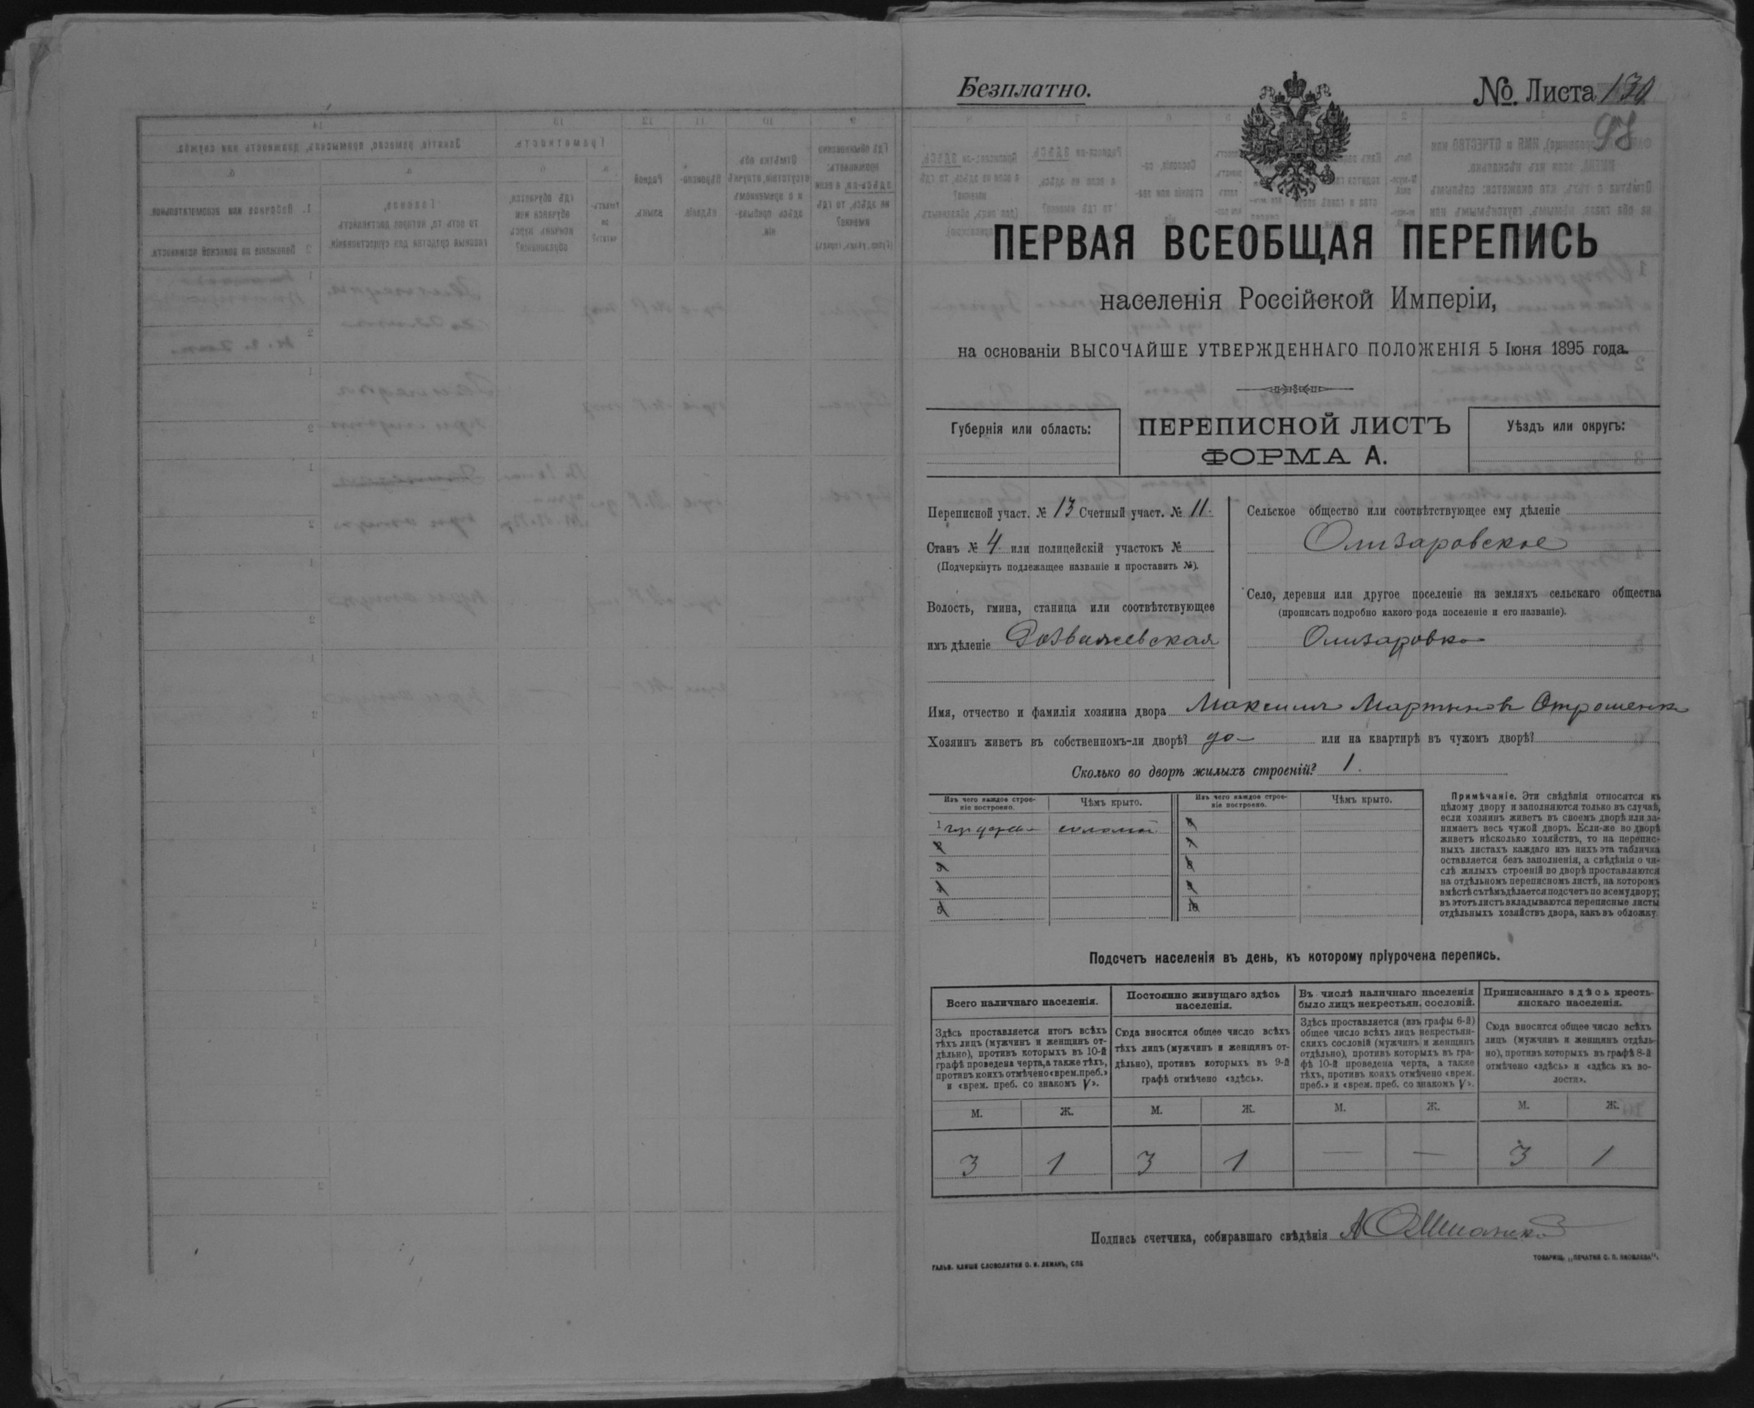 Безплатно.
№ Листа 130
98
ПЕРВАЯ ВСЕОБЩАЯ ПЕРЕПИСЬ
населенія Россійской Имперіи,
на основаніи ВЫСОЧАЙШЕ УТВЕРЖДЕННАГО ПОЛОЖЕНІЯ 5 Іюня 1895 года.
Губернія или область:
ПЕРЕПИСНОЙ ЛИСТЪ
ФОРМА А.
Уѣздъ или округъ:
Переписной участ. № 13 Счетный участ. № 11.
Станъ № 4 или полицейскій участокъ №
(Подчеркнуть подлежащее названіе и проставить №).
Волость, гмина, станица или соотвѣтствующее
имъ дѣленіе Розважевская
Сельское общество или соотвѣтствующее ему дѣленіе
Олизаровское
Село, деревня или другое поселеніе на земляхъ сельскаго общества
(прописать подробно какого рода поселеніе и его названіе).
Олизаровка
Имя, отчество и фамилія хозяина двора Максимъ Мартыновъ Отрошенко
Хозяинъ живетъ въ собственномъ-ли дворѣ? да или на квартирѣ въ чужомъ дворѣ?
Сколько во дворѣ жилыхъ строеній? 1.
Изъ чего каждое строе-
ніе построено.
Чѣмъ крыто.
Изъ чего каждое строе-
ніе построено.
Чѣмъ крыто.
1 изъ дерева соломой
Примѣчаніе. Эти свѣдѣнія относятся къ
цѣлому двору и заполняются только въ случаѣ,
если хозяинъ живетъ въ своемъ дворѣ или за-
нимаетъ весь чужой дворъ. Если-же во дворѣ
живетъ нѣсколько хозяйствъ, то на перепис-
ныхъ листахъ каждаго изъ нихъ эта табличка
оставляется безъ заполненія, а свѣдѣнія о чи-
слѣ жилыхъ строеній во дворѣ проставляются
на отдѣльномъ переписномъ листѣ, на которомъ
вмѣстѣ съ тѣмъ дѣлается подсчетъ по всему двору;
въ этотъ листъ вкладываются переписные листы
отдѣльныхъ хозяйствъ двора, какъ въ обложку
Подсчетъ населенія въ день, къ которому пріурочена перепись.
Всего наличнаго населенія.
Здѣсь проставляется итогъ всѣхъ
тѣхъ лицъ (мужчинъ и женщинъ от-
дѣльно), противъ которыхъ въ 10-й
графѣ проведена черта, а также тѣхъ,
противъ коихъ отмѣчено «врем. преб.»
и «врем. преб. со знакомъ V».
Постоянно живущаго здѣсь
населенія.
Сюда вносится общее число всѣхъ
тѣхъ лицъ (мужчинъ и женщинъ от-
дѣльно), противъ которыхъ въ 9-й
графѣ отмѣчено «здѣсь».
Въ числѣ наличнаго населенія
было лицъ некрестьян. сословій.
Здѣсь проставляется (изъ графы 6-й)
общее число всѣхъ лицъ некрестьян-
скихъ сословій (мужчинъ и женщинъ
отдѣльно), противъ которыхъ въ гра-
фѣ 10-й проведена черта, а также
тѣхъ, противъ коихъ отмѣчено «врем.
преб.» и «врем. преб. со знакомъ V».
Приписаннаго здѣсь кресть-
янскаго населенія.
Сюда вносится общее число всѣхъ
лицъ (мужчинъ и женщинъ отдѣль-
но), противъ которыхъ въ графѣ 8-й
отмѣчено «здѣсь» и «здѣсь въ во-
лости».
М. Ж. М. Ж. М. Ж. М. Ж.
3 1 3 1 — — 3 1
Подпись счетчика, собиравшаго свѣдѣнія
ГАЛЬВ. КЛИШЕ СЛОВОЛИТНИ О. И. ЛЕМАНЪ, СПБ
ТОВАРИЩ. „ПЕЧАТНЯ С. П. ЯКОВЛЕВА“.